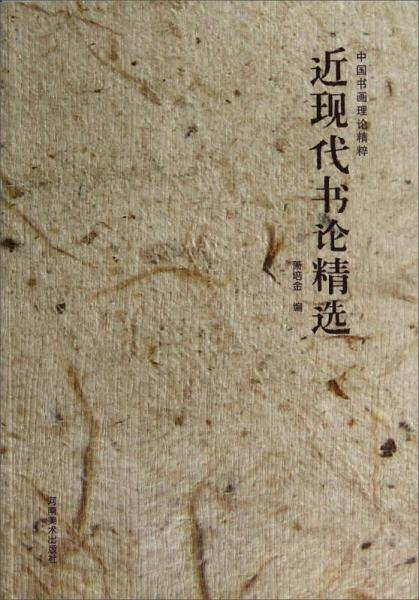 中国书画理论精粹
近现代书论精选
萧培金 编
河南美术出版社